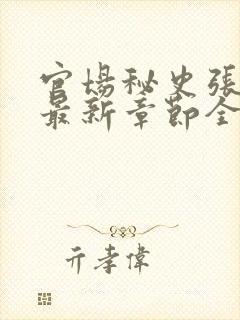 官場秘史張
最新章節全
亓孝偉